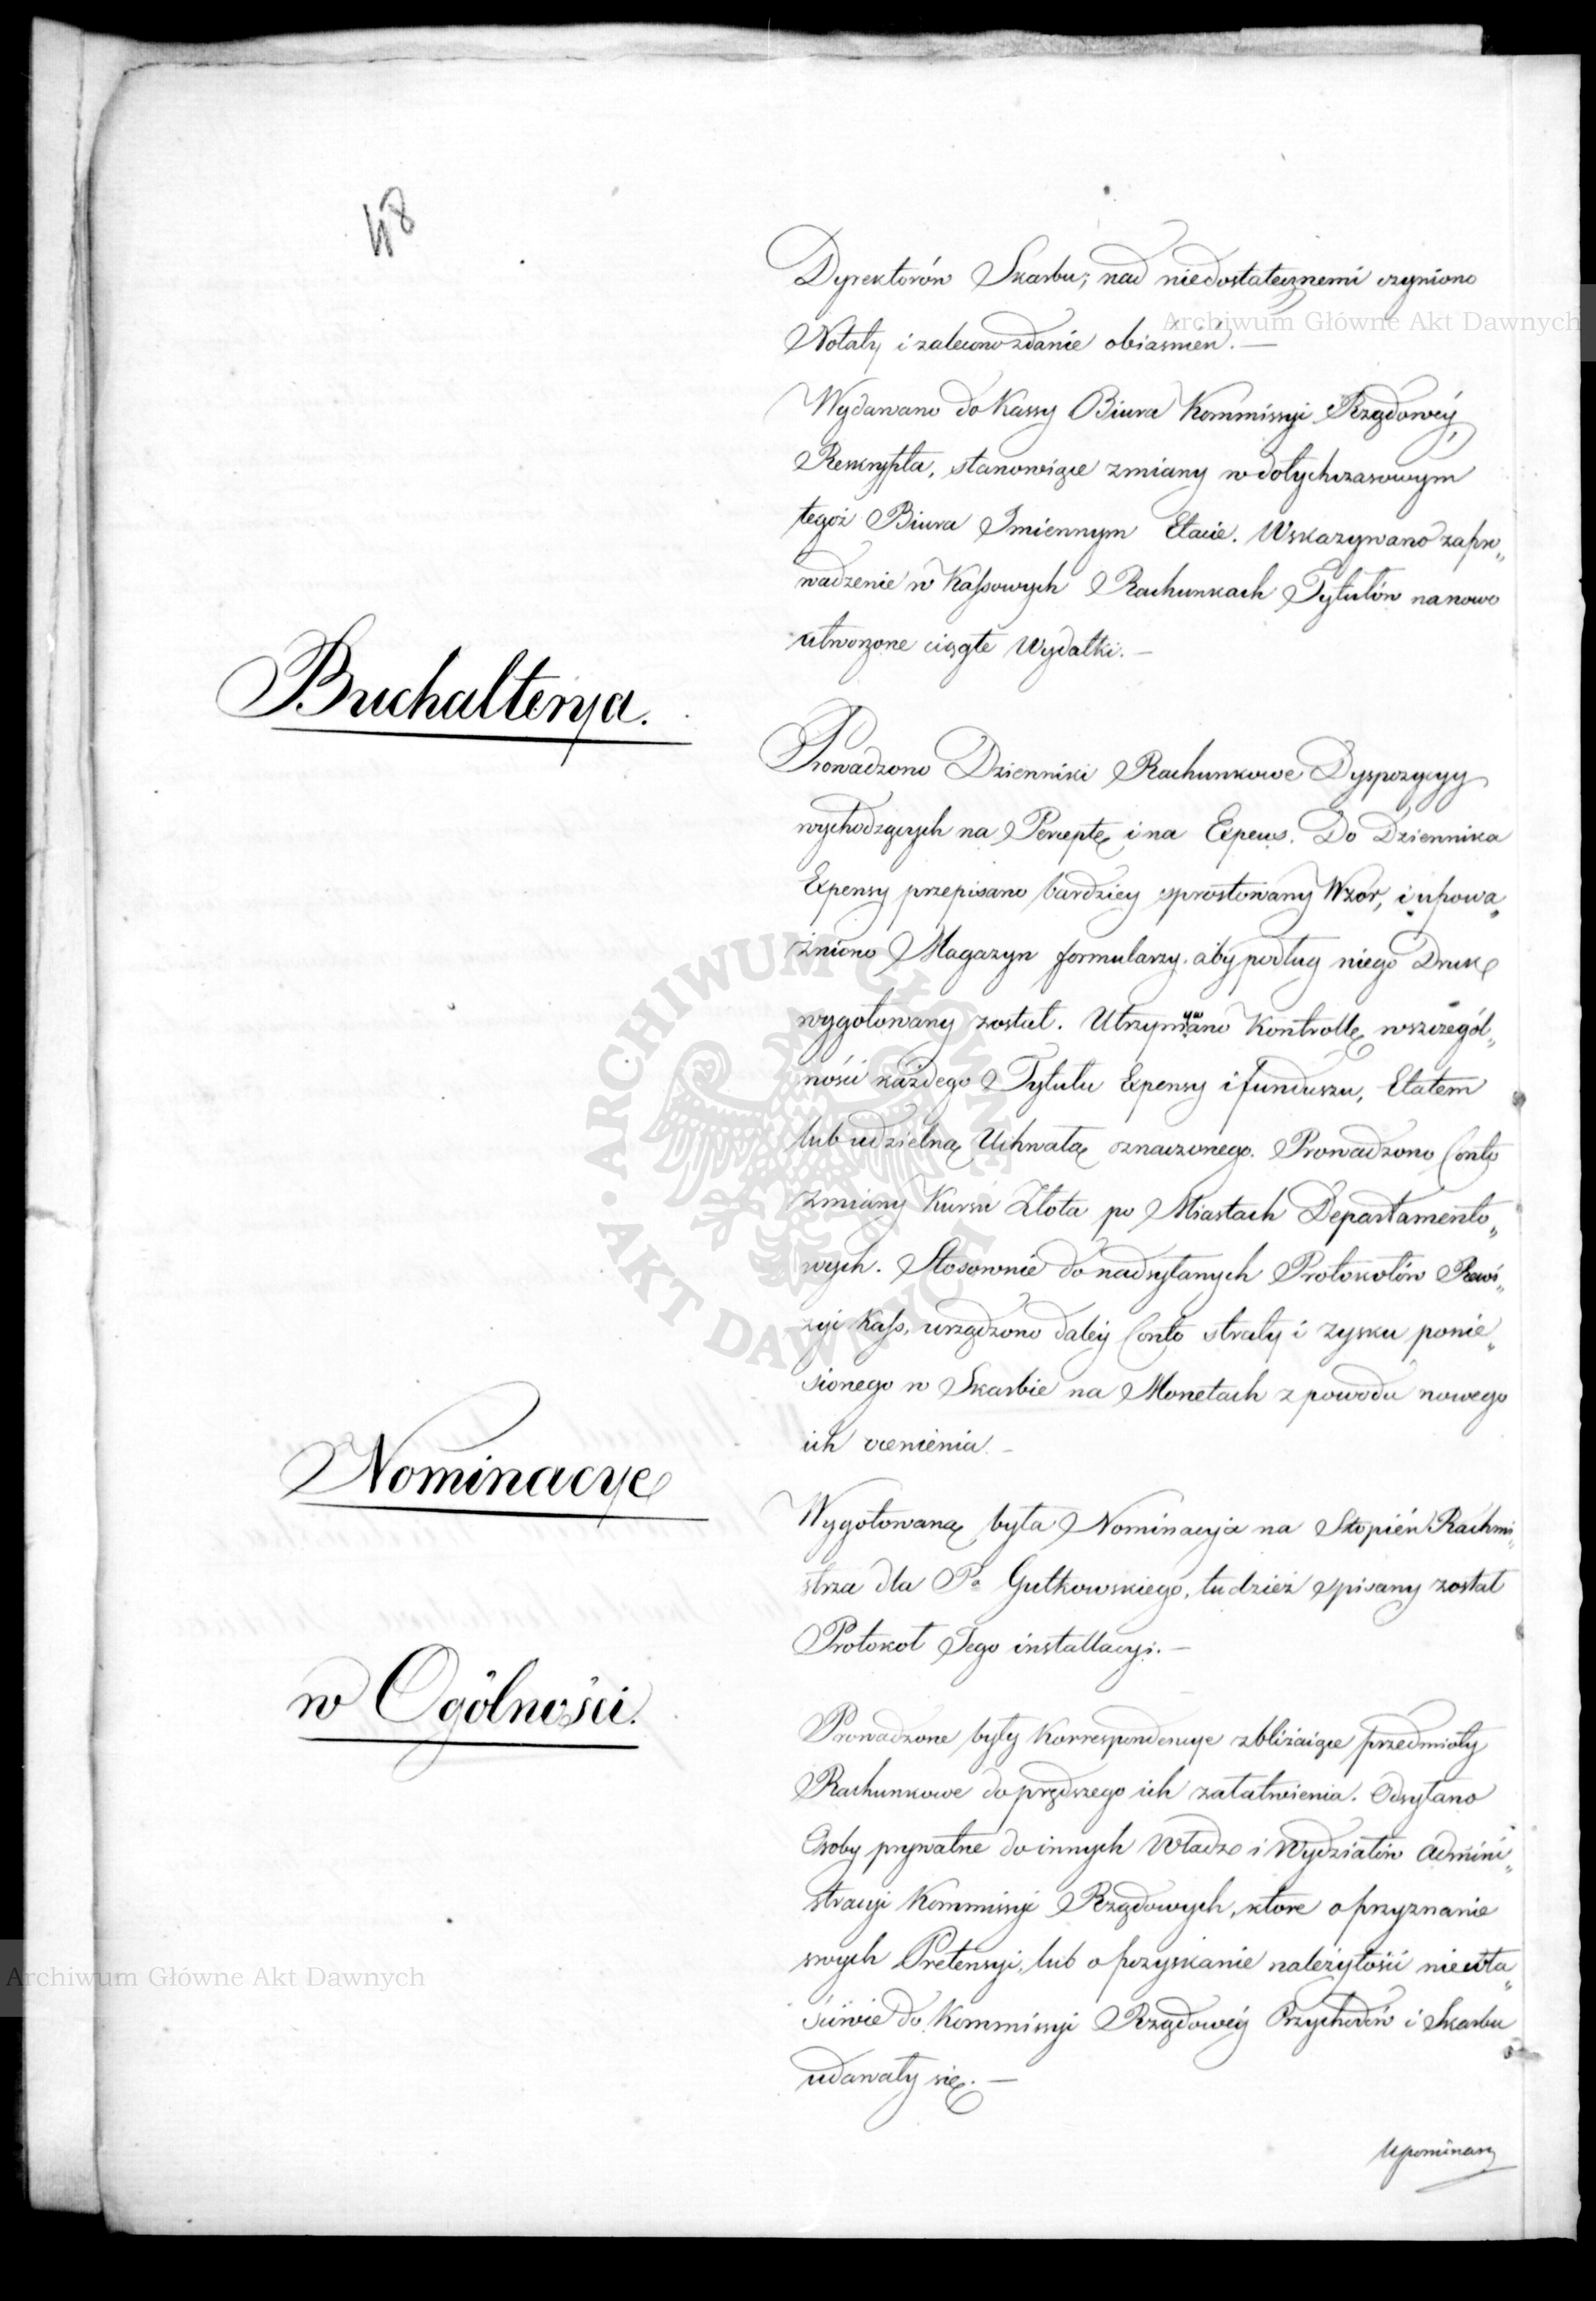 48
Dyrektorów Skarbu; nad niedostatecznemi czyniono
Notaty i zalecono zdanie obiaśnień. —
Wydawano do Kassy Biura Kommissyi Rządowéy
Reskrypta, stanowiące zmiany w dotychczasowym
tegoż Biura Imiennym Etacie. Wskazywano zapro„
wadzenie w Kassowych Rachunkach Tytułów na nowo
utworzone ciągłe Wydatki. —
Buchalterya.
Prowadzono Dzienniki Rachunkowe Dyspozycyy
wychodzących na Perceptę i na Expens. Do Dziennika
Expensy przepisano bardziey sprostowany Wzór, i upowa„
żniono Magazyn formularzy, aby podług niego Druk
wygotowany został. Utrzymywano Kontrollę w szczegól„
ności każdego Tytułu Expensy i funduszu, Etatem
lub udzielną Uchwałą oznaczonego. Prowadzono Conto
zmiany Kursu Złota po Miastach Departamento„
wych. Stosownie do nadsyłanych Protokołów Rewi„
zyi Kass, urządzono daley Conto straty i zysku ponie„
sionego w Skarbie na Monetach z powodu nowego
ich ocenienia. —
Nominacye
Wygotowaną była Nominacyia na Stopień Rachmi„
strza dla Pa Gutkowskiego, tudzież spisany został
Protokoł Jego installacyi. —
w Ogólności.
Prowadzone były Korrespondencye zbliżaiące przedmioty
Rachunkowe do prędszego ich załatwienia. Odsyłano
Osoby prywatne do innych Władz i Wydziałów Admini„
stracyi Kommissyi Rządowych, które o przyznanie
swych Pretensyi, lub o pozyskanie należytości niewła„
ściwie do Kommissyi Rządowéy Przychodów i Skarbu
udawały się. —
Upominany
Archiwum Główne Akt Dawnych
Archiwum Główne Akt Dawnych
ARCHIWUM GŁÓWNE AKT DAWNYCH